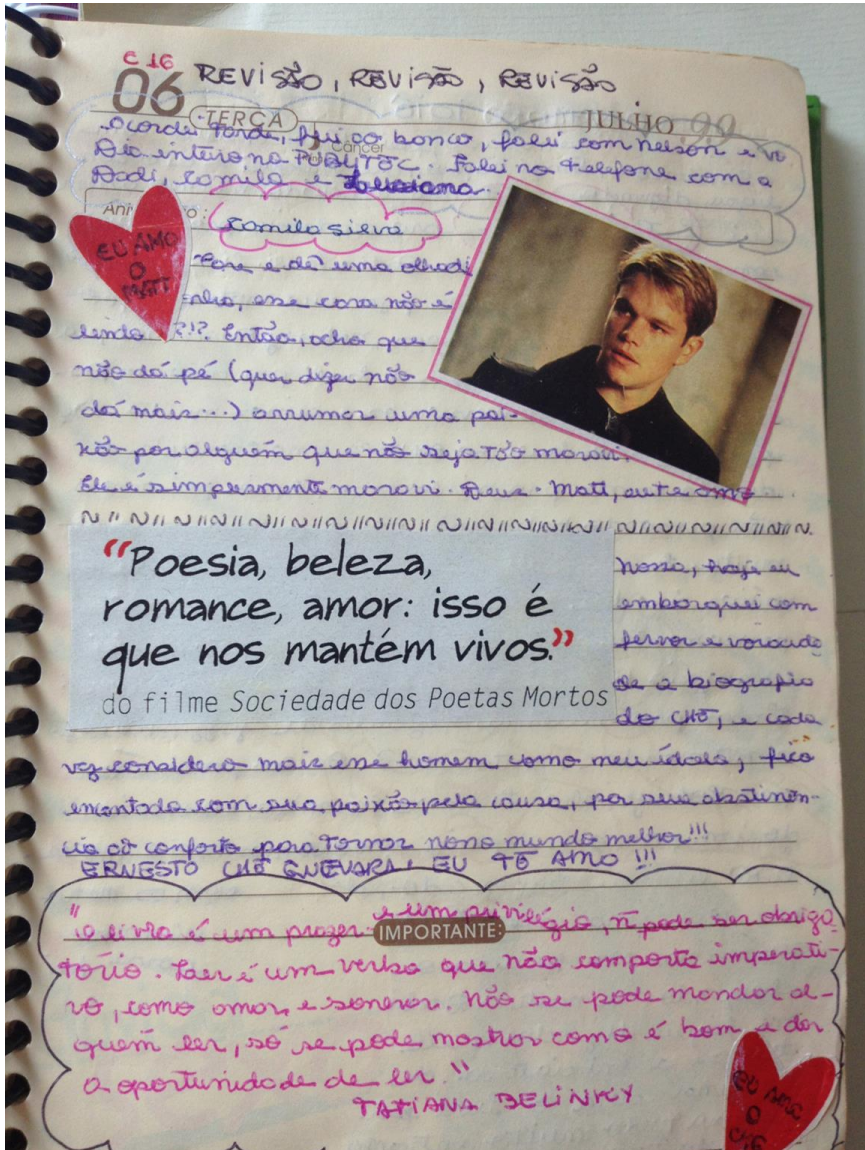 C 16
06 REVISÃO, REVISÃO, REVISÃO
TERÇA JULHO 99
Acordei tarde, fui ao banco, falei com nelson e vi
Câncer
Dia inteiro na POLYTEC. Falei no telefone com a
Dadi, Camila e Luciana.
Ani o:
Camila Silva
EU AMO
O
MATT
Pare e dê uma olhadi
nha, esse cara não é
lindo ?!?. Então, acho que
não dá pé (quer dizer não
dá mais...) arrumar uma pai-
xão por alguém que não seja tão maravi.
Ele é simplesmente maravi. Deus. Matt, eu te amo
“Poesia, beleza,
romance, amor: isso é
que nos mantém vivos.”
do filme Sociedade dos Poetas Mortos
Nossa, hoje eu
embarquei com
fervor e voracida
de a biografia
do CHE, e cada
vez considero mais esse homem como meu ídolo, fico
encantada com sua paixão pela causa, por sua obstinân-
cia ao conforto para tornar nosso mundo melhor!!!
ERNESTO CHE GUEVARA, EU TE AMO !!!
"O livro é um prazer e um privilégio, ñ pode ser obriga
IMPORTANTE:
tório. Ler é um verbo que não comporta imperati-
vo, como amar, e sonhar. Não se pode mandar al-
guém ler, só se pode mostrar como é bom e dar
a oportunidade de ler."
TATIANA BELINKY
EU AMO
O